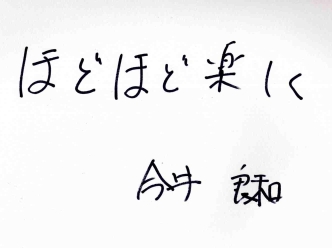 ほどほど楽しく
今井 良和